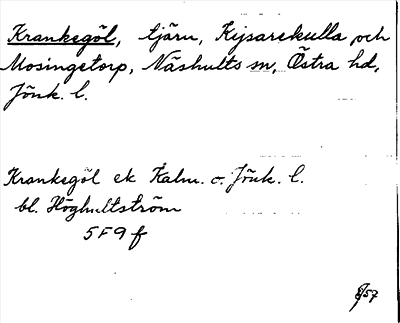 Krankegöl, tjärn, Kejsarekulla och
Mosingetorp, Näshults sn, Östra hd,
Jönk. l.
Krankegöl ek Kalm. o. Jönk. l.
bl. Höghultström
5F9f